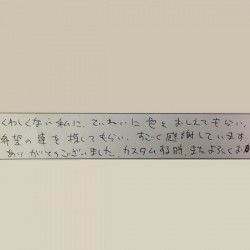 くわしくない私に、ていねいに色々おしえてもらい、
希望の車を探してもらい、すごく感謝しています
ありがとうございました。カスタムする時、またよろしくお